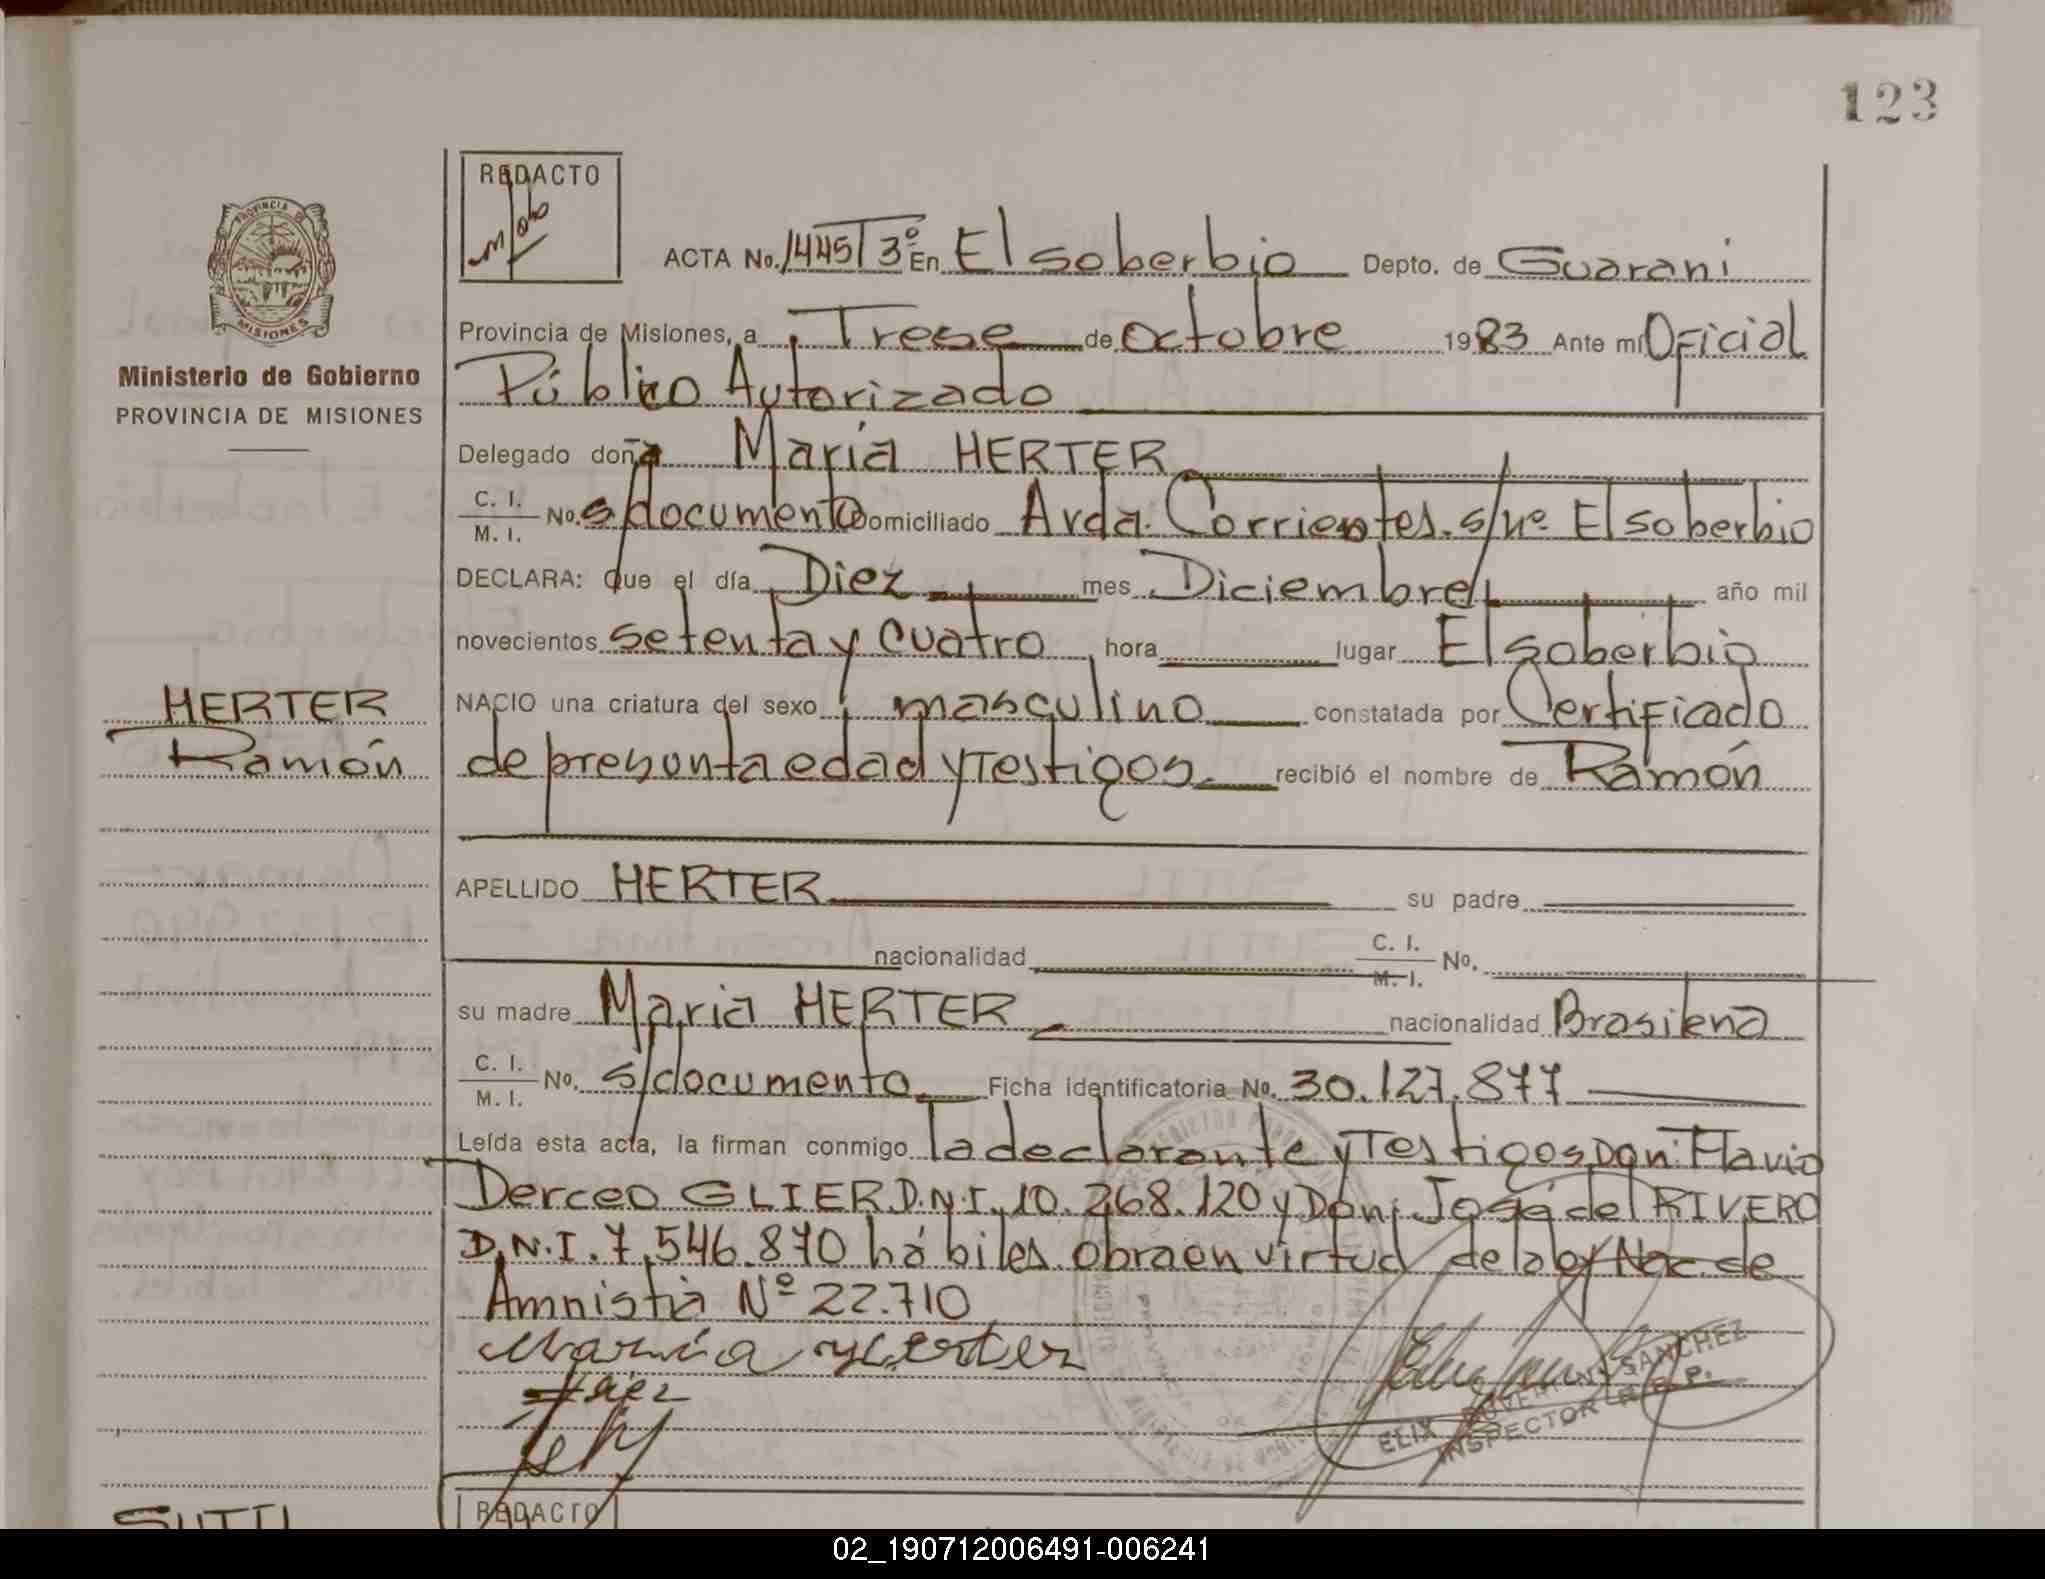 123
REDACTO
ACTA No. 1445 T 3º En El soberbio Depto. de Guarani
PROVINCIA DE
MISIONES
Provincia de Misiones, a Trese de octubre 1983 Ante mi Oficial
Público Autorizado
Ministerio de Gobierno
PROVINCIA DE MISIONES
Delegado doña María HERTER
C. I.
M. I. No. s/documento Domiciliado Avda. Corrientes. s/nº El soberbio
DECLARA: Que el día Diez mes Diciembre año mil
novecientos setenta y cuatro hora lugar El soberbio
HERTER
Ramón
NACIO una criatura del sexo masculino constatada por Certificado
de presunta edad y Testigos recibió el nombre de Ramón
APELLIDO HERTER su padre
nacionalidad C. I.
M. I. No.
su madre Maria HERTER nacionalidad Brasilena
C. I.
M. I. No. s/documento Ficha identificatoria No. 30.127.877
Leída esta acta, la firman conmigo la declarante y Testigos Don: Flavio
Derceo GLIER D.N.I. 10.268.120 y Don: José del RIVERO
D.N.I. 7.546.870 hábiles. obra en virtud de la Ley Nac. de
Amnistia Nº 22.710
Maria Herter
SANCHEZ
ELIX
INSPECTOR
REDACTO
02_190712006491-006241